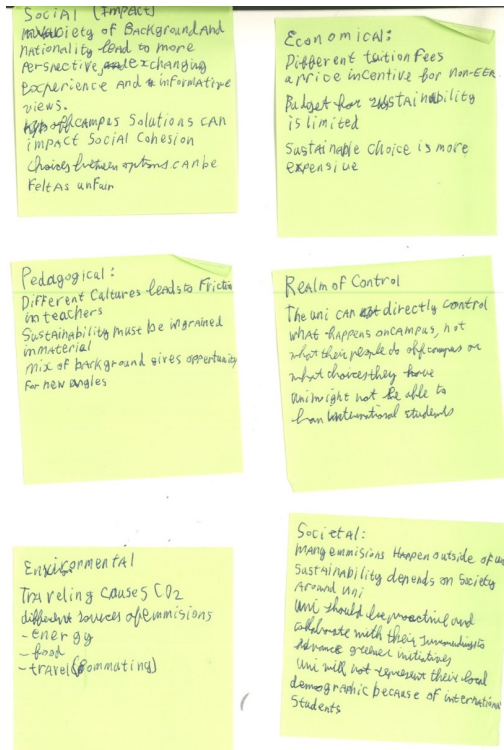 Social (Impact)
variety of Background And
nationality lead to more
Perspective, exchanging
Experience And informative
views.
offcampus Solutions CAN
impact Social Cohesion
Choices between options can be
Felt As unfair
Economical:
Different tuition Fees
a price incentive for non-EER
Budget for sustainability
is limited
Sustainable choice is more
expensive
Pedagogical:
Different Cultures leads to Friction
in teachers
Sustainability must be ingrained
in material
mix of background gives opportunity
for new angles
Realm of Control
The uni can directly control
what happens on campus, not
what their people do offcampus or
what choices they have
uni might not be able to
ban international students
Envirormental
Traveling causes CO2
different sources of emmisions
- energy
- food
- travel (commuting)
Societal:
many emmisions Happen outside of uni
Sustainability depends on Society
Around uni
uni should be proactive and
collaborate with their surroundings to
advance greener initiatives
uni will not represent their local
demographic because of international
Students